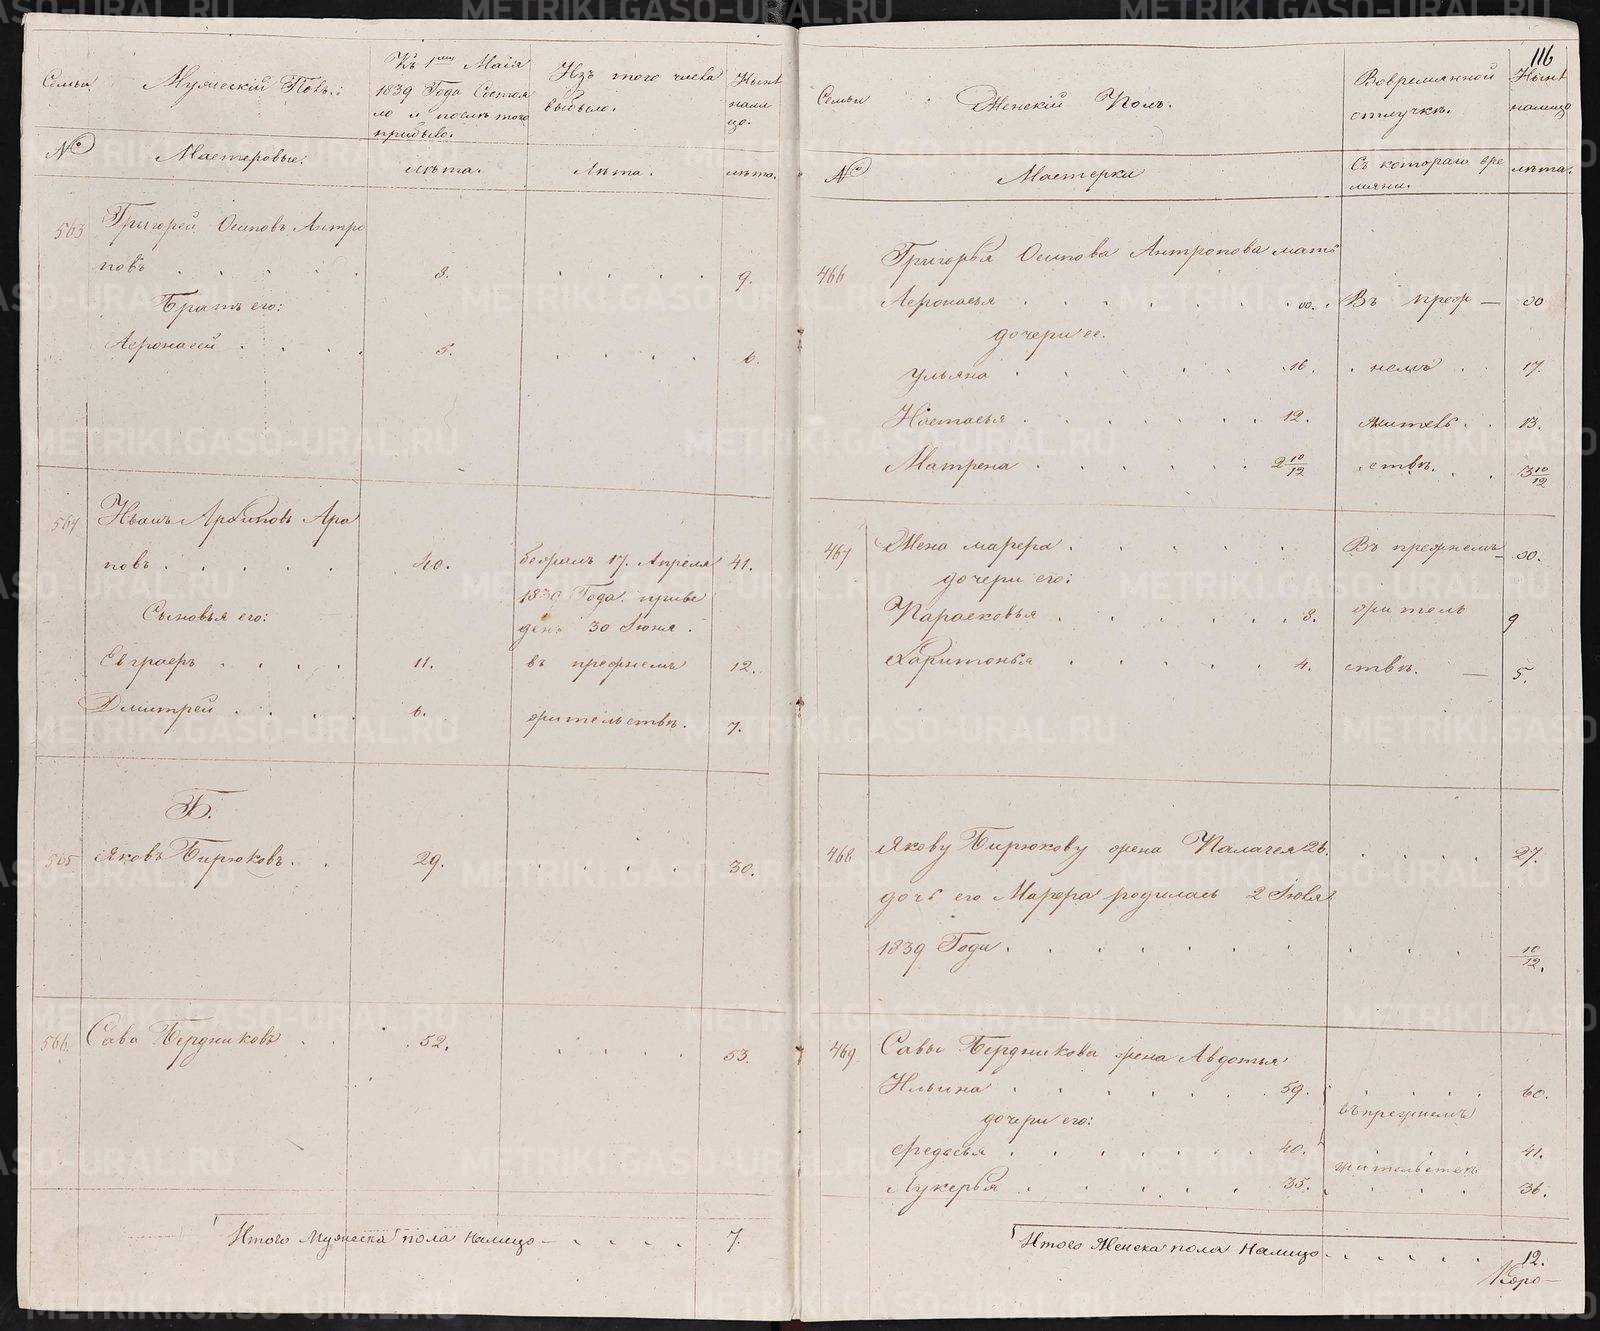 Семьи
Мужескій Полъ:
Къ 1му Маія
1839 Года Состоя
ло и послѣ того
прибыло.
Изъ того числа
выбыло.
Нынѣ
нали
цо.
№
Мастеровые:
лѣта.
Лѣта.
лѣта.
563 Григорей Осиповъ Антро
повъ . . . . . 8. . . . . 9.
Братъ его:
Афонасей . . . . 5. . . . . 6.
564 Иванъ Архиповъ Ара
повъ . . . . . 40. бежалъ 17. Апреля 41.
1830 Года. приве
Сыновья его:
денъ 30 Июня.
Евграфъ . . . . 11. въ прежнемъ 12.
Дмитрей . . . . 6. жительствѣ. 7.
Б.
565 Яковъ Бирюковъ . . 29. . . . . 30.
566 Сава Бердниковъ . . 52. . . . . 53.
Итого Мужеска пола налицо — . . . . 7.
116
Семьи
Женскій Полъ.
Вовремянной
отлучкѣ.
Нынѣ
налицо
№
Мастерки
Съ котораго вре
мяни.
лѣта.
466 Григорья Осипова Антропова мать
Афонасья . . . . . . . 00. Въ преж — 00
дочери ее.
Ульяна . . . . . 16. немъ . . 17.
Настасья . . . . . . 12. жительъ . . 13.
Матрена . . . . . . 2 10/12 ствѣ. . . 3 10/12
467 Жена марфа . . . . . Въ прежнемъ 00.
дочери его:
Парасковья . . . . . . 8. житель 9
Харитонья . . . . . 4. ствѣ. — 5.
468 Якову Бирюкову жена Палагея 26. . . . . 27.
дочь его Марфа родилась 2 Июля
1839 Года . . . . . . . . . . . 10/12.
469 Савы Бердникова жена Авдотья
Ильина . . . . . . 59. . . . . 60.
въ прежнемъ
дочери его:
Федосья . . . . . . 40. 41.
жительствѣ
Лукерья . . . . . 35. . . . . 36.
Итого Женска пола налицо — . . . . . 12.
METRIKI.GASO-URAL.RU